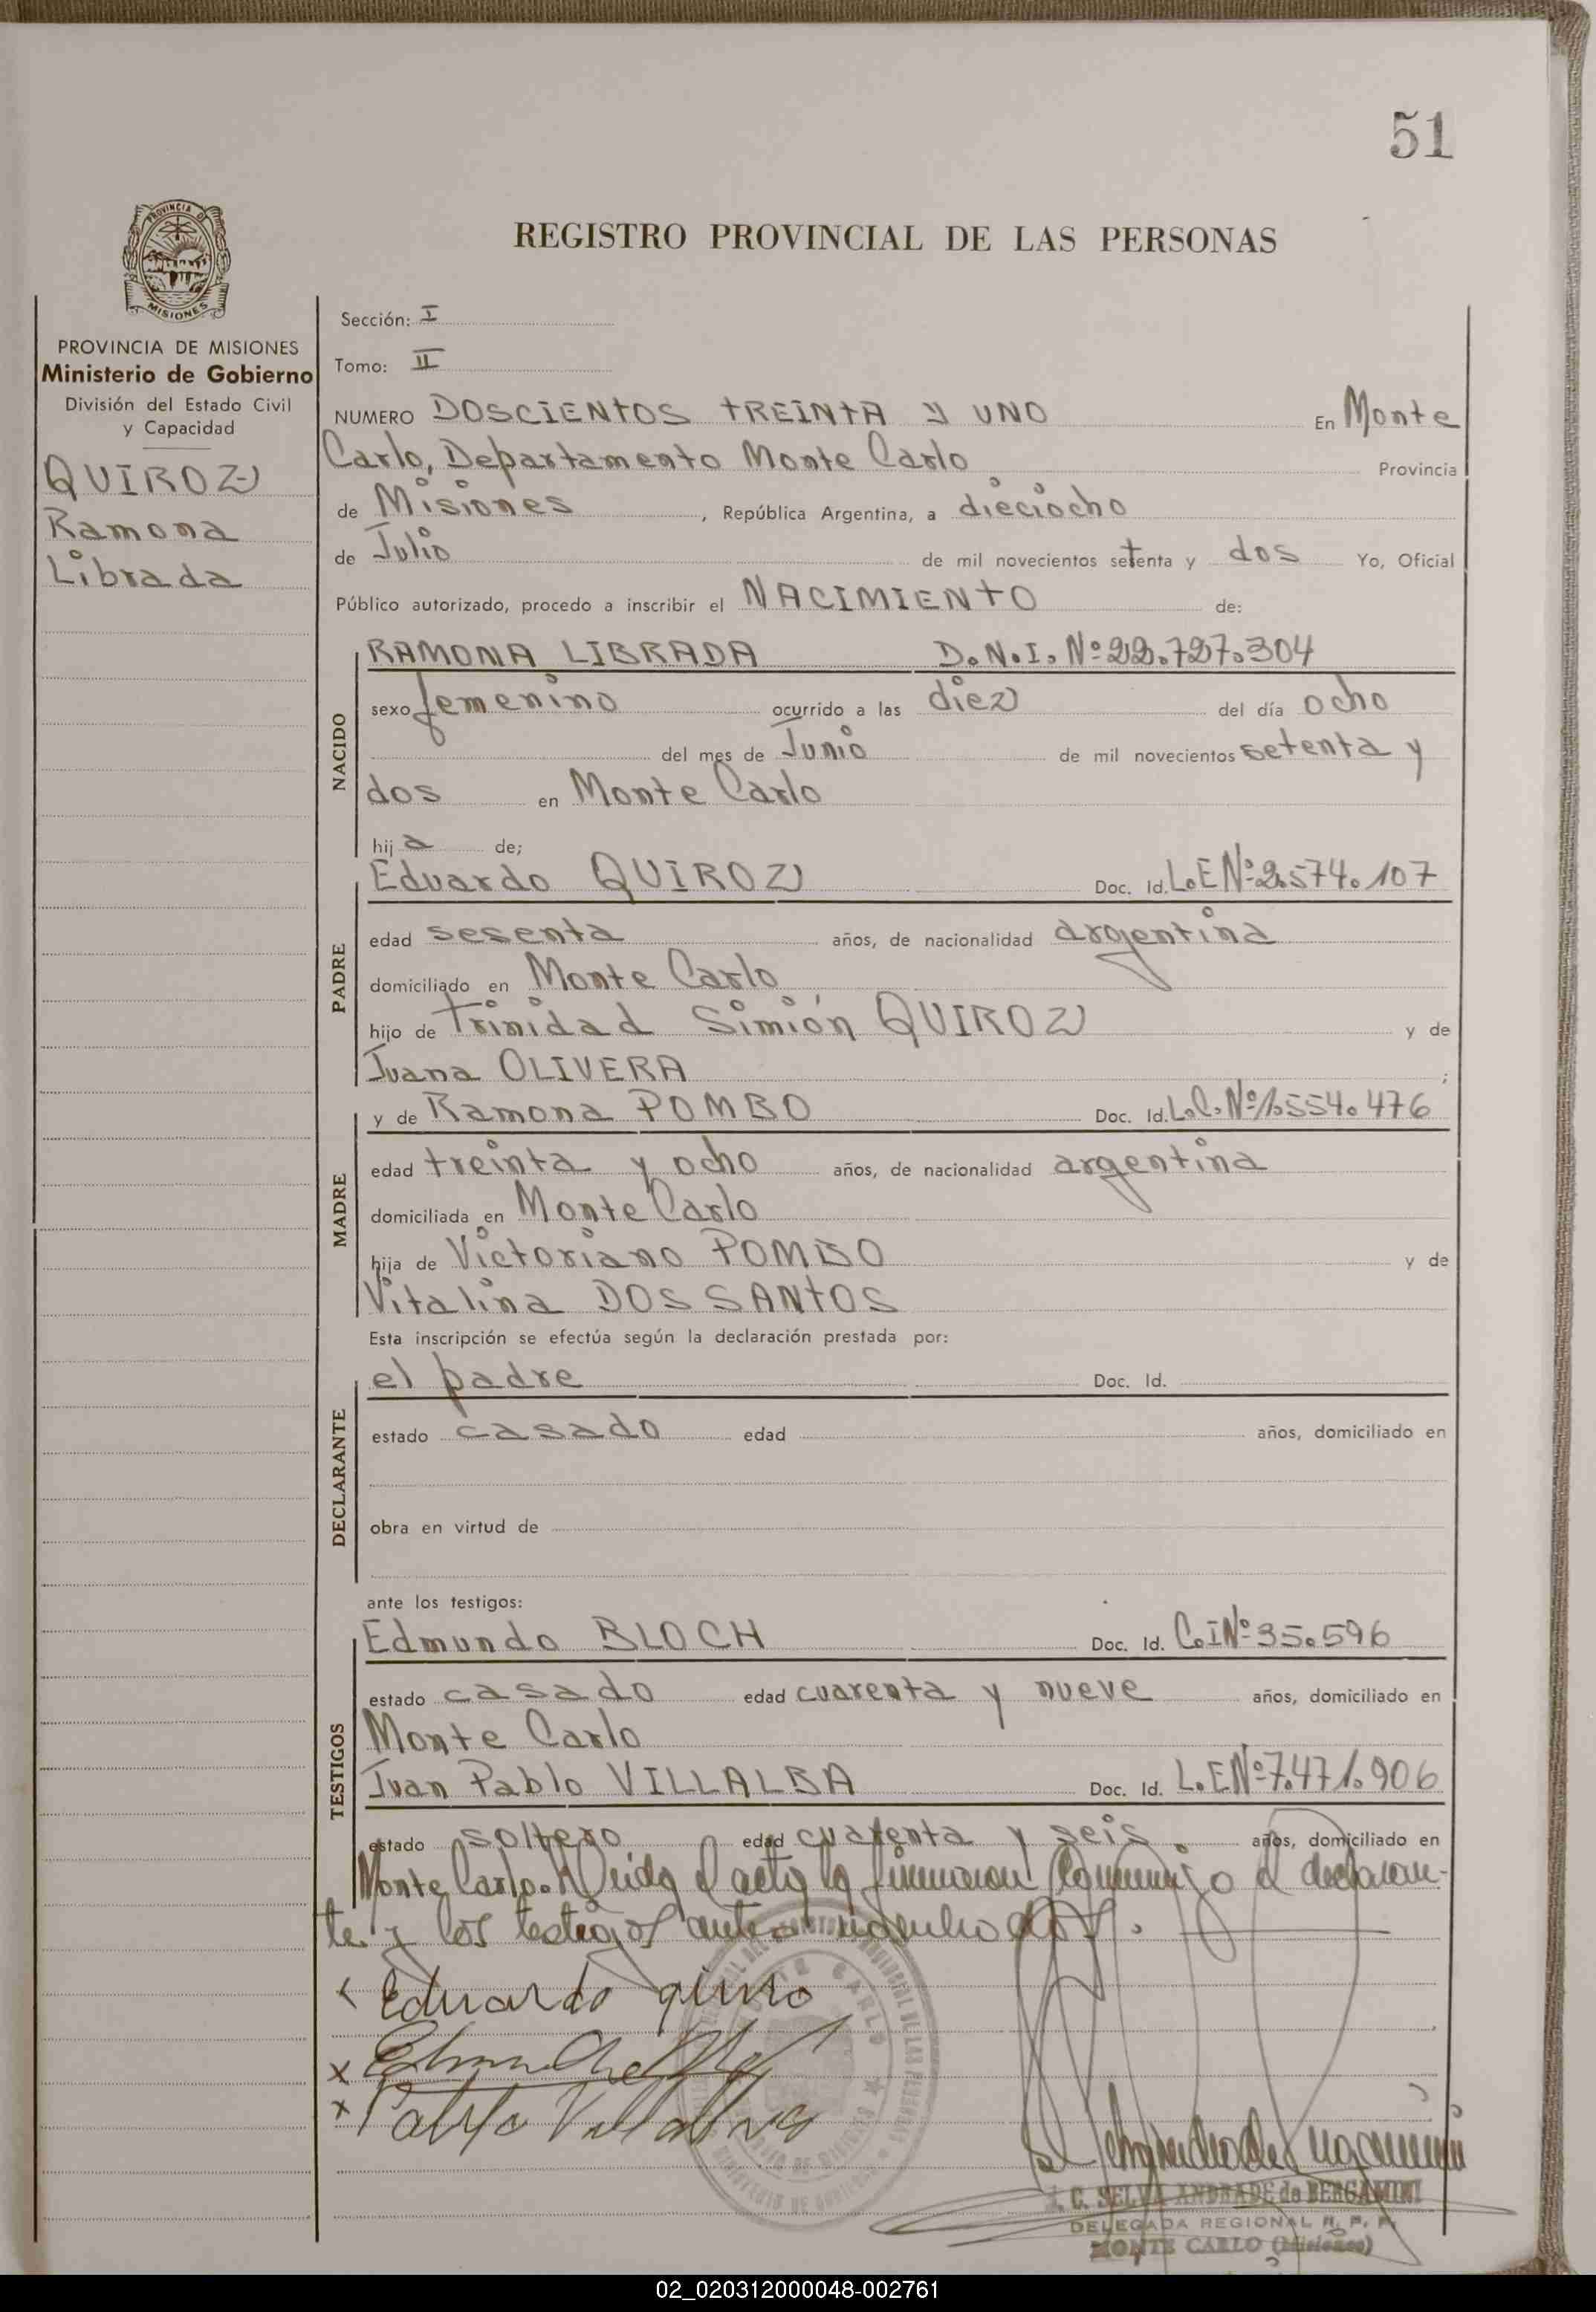 51
PROVINCIA DE
MISIONES
REGISTRO PROVINCIAL DE LAS PERSONAS
PROVINCIA DE MISIONES
Ministerio de Gobierno
División del Estado Civil
y Capacidad
QUIROZ
Ramona
Librada
Sección: I
Tomo: II
NUMERO DOSCIENTOS TREINTA Y UNO En Monte
Carlo, Departamento Monte Carlo Provincia
de Misiones, República Argentina, a dieciocho
de Julio de mil novecientos setenta y dos Yo, Oficial
Público autorizado, procedo a inscribir el NACIMIENTO de:
NACIDO
RAMONA LIBRADA D.N.I. Nº 22.727.304
sexo femenino ocurrido a las diez del día ocho
del mes de Junio de mil novecientos setenta y
dos en Monte Carlo
hija de;
PADRE
Eduardo QUIROZ Doc. Id. L.E Nº 2.574.107
edad sesenta años, de nacionalidad argentina
domiciliado en Monte Carlo
hijo de Trinidad Simión QUIROZ y de
Juana OLIVERA ;
MADRE
y de Ramona POMBO Doc. Id. L.C. Nº 1.554.476
edad treinta y ocho años, de nacionalidad argentina
domiciliada en Monte Carlo
hija de Victoriano POMBO y de
Vitalina DOS SANTOS
Esta inscripción se efectúa según la declaración prestada por:
DECLARANTE
el padre Doc. Id.
estado casado edad años, domiciliado en
obra en virtud de
ante los testigos:
TESTIGOS
Edmundo BLOCH Doc. Id. C.I Nº 35.596
estado casado edad cuarenta y nueve años, domiciliado en
Monte Carlo
Juan Pablo VILLALBA Doc. Id. L.E Nº 7.471.906
estado soltero edad cuarenta y seis años, domiciliado en
Monte Carlo. Leida el acta la firmaron conmigo el declaran-
te y los testigos
Eduardo quiro
Pablo Villalba
C. SELVA ANDRADE de BERGAMINI
DELEGADA REGIONAL R. P. P.
MONTE CARLO (Misiones)
02_020312000048-002761